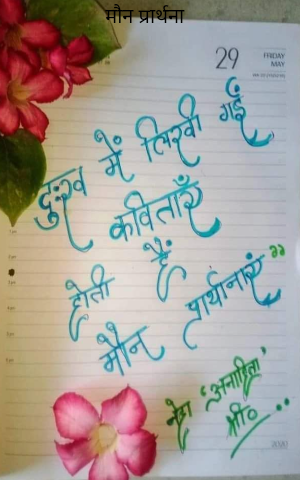 मौन प्रार्थना
29 FRIDAY
MAY
दुःख में लिखी गईं
कविताएँ
होती हैं
मौन प्रार्थनाएं”
'अनाहिता'
श्री०..
2020